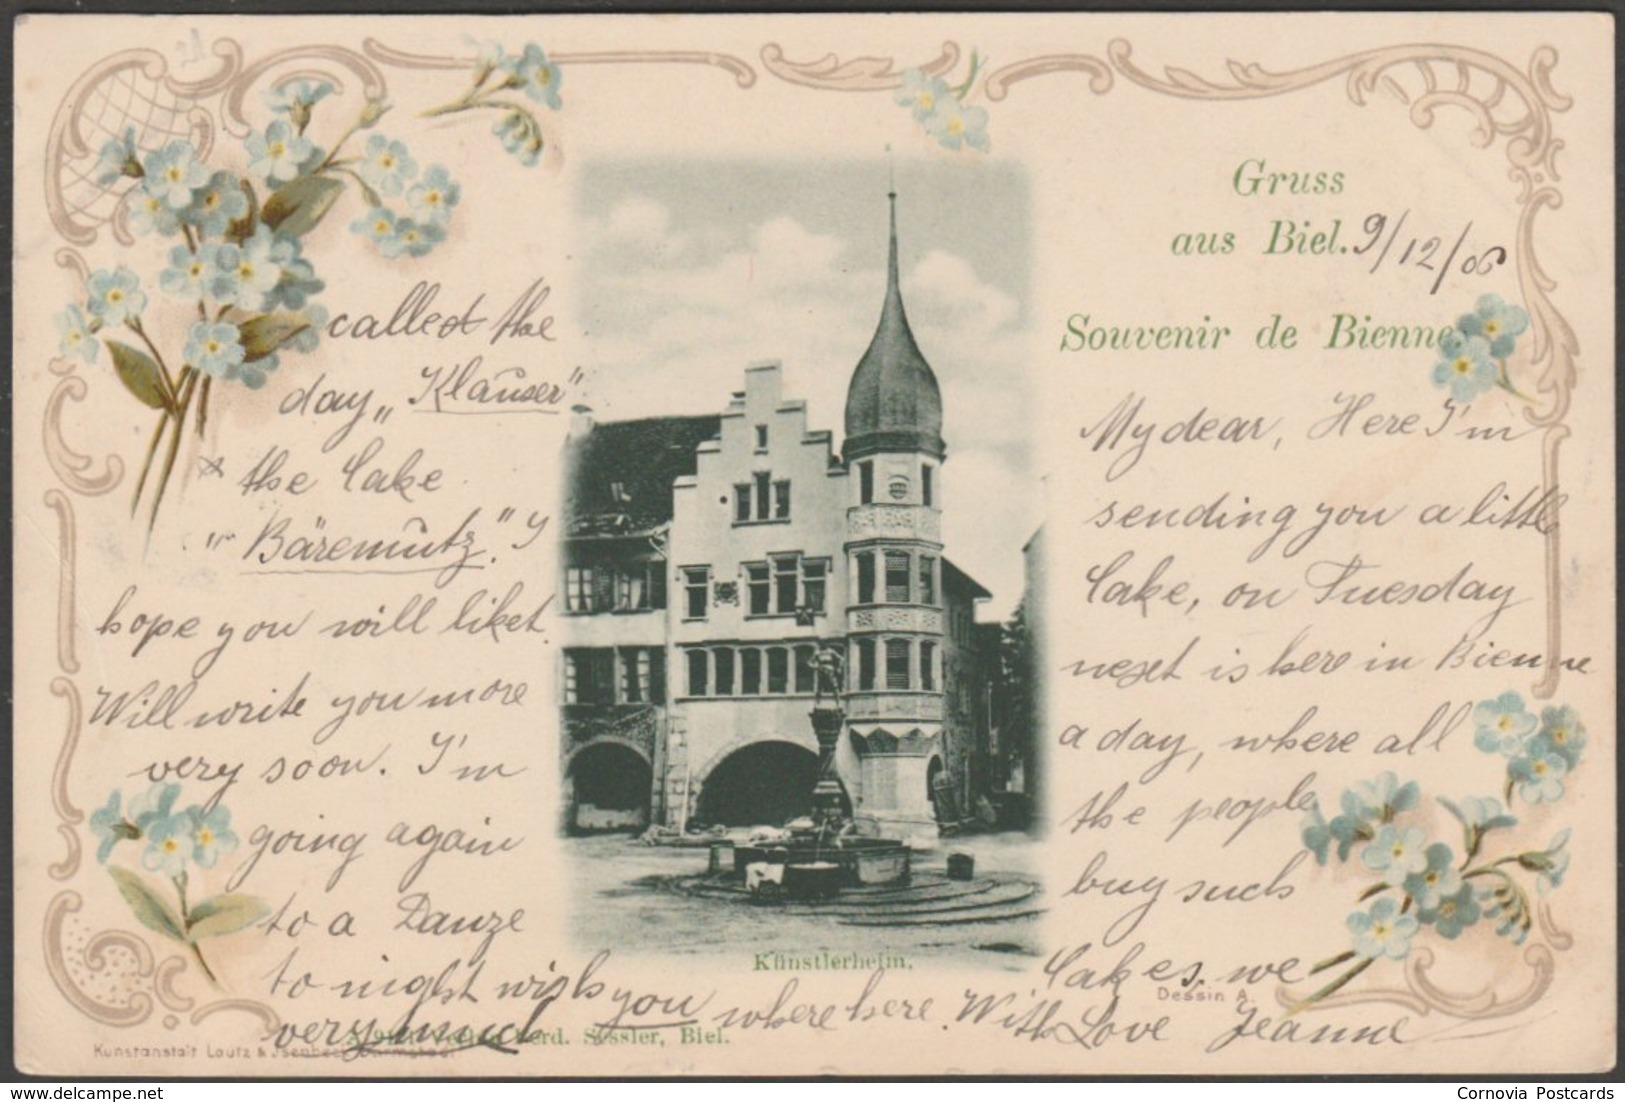 Gruss
aus Biel. 9/12/06
Souvenir de Bienne.
My dear, Here I'm
sending you a little
Cake, on Tuesday
next is here in Bienne
a day, where all
the people
buy such
Cakes, we
called the
day „Klauser"
the Cake
„Bäremutz". I
hope you will like t.
Will write you more
very soon. I'm
going again
to a Danze
to night wish you where here. With Love Jeanne
very much
Künstlerheim.
Dessin A.
Verlag Ferd. Sessler, Biel.
Kunstanstalt Lautz & Isenbeck, Darmstadt
Cornovia Postcards